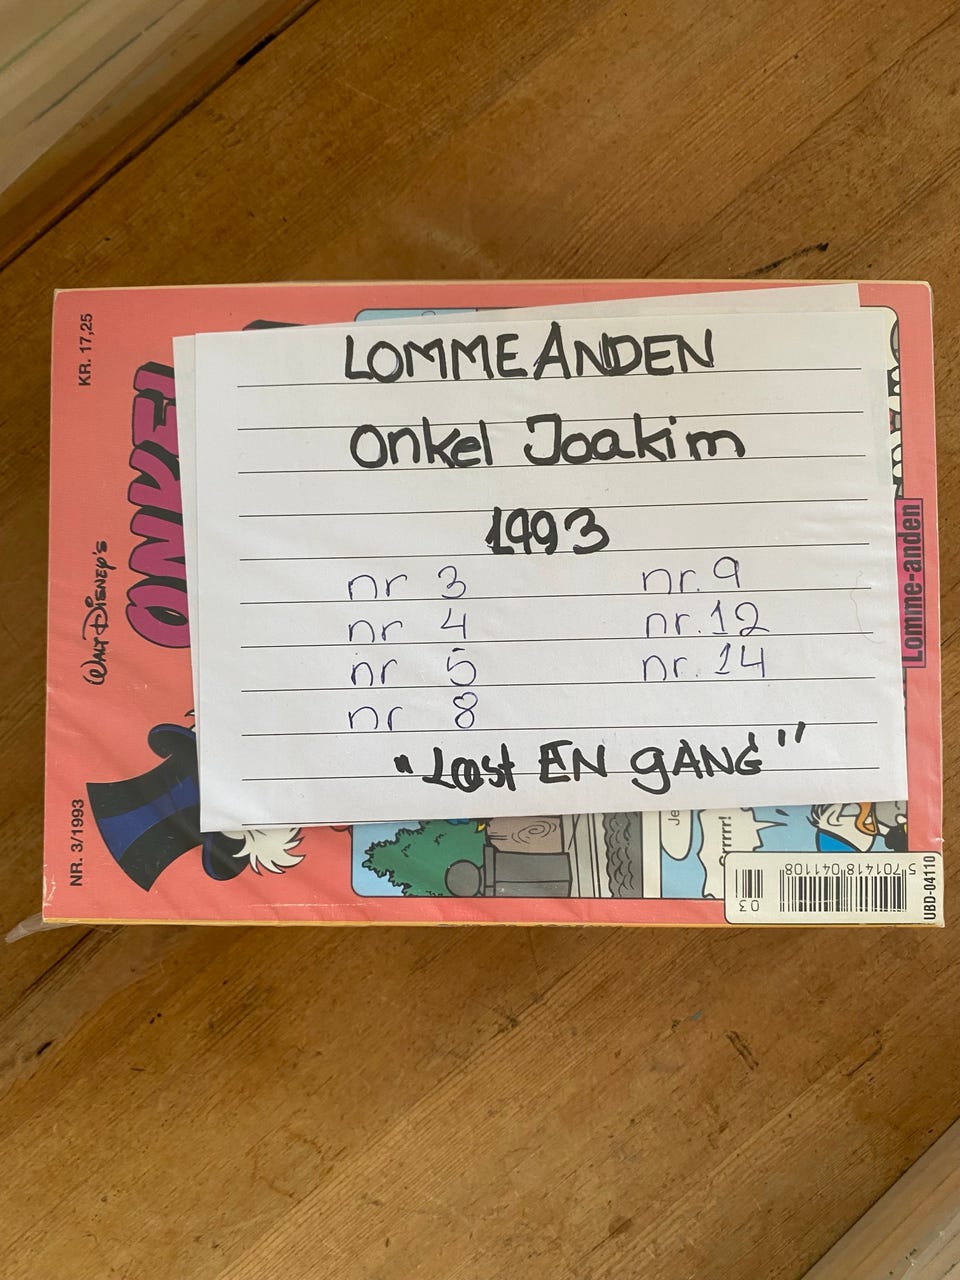 LOMMEANDEN
Onkel Joakim
1993
nr 3
nr 4
nr 5
nr 8
nr. 9
nr. 12
nr. 14
"Læst EN gANG"
KR. 17,25
WALT DISNEY'S
ONKEL
NR. 3/1993
Lomme-anden
Je
rrrr!
03
5 701418 041108
UBD-04110